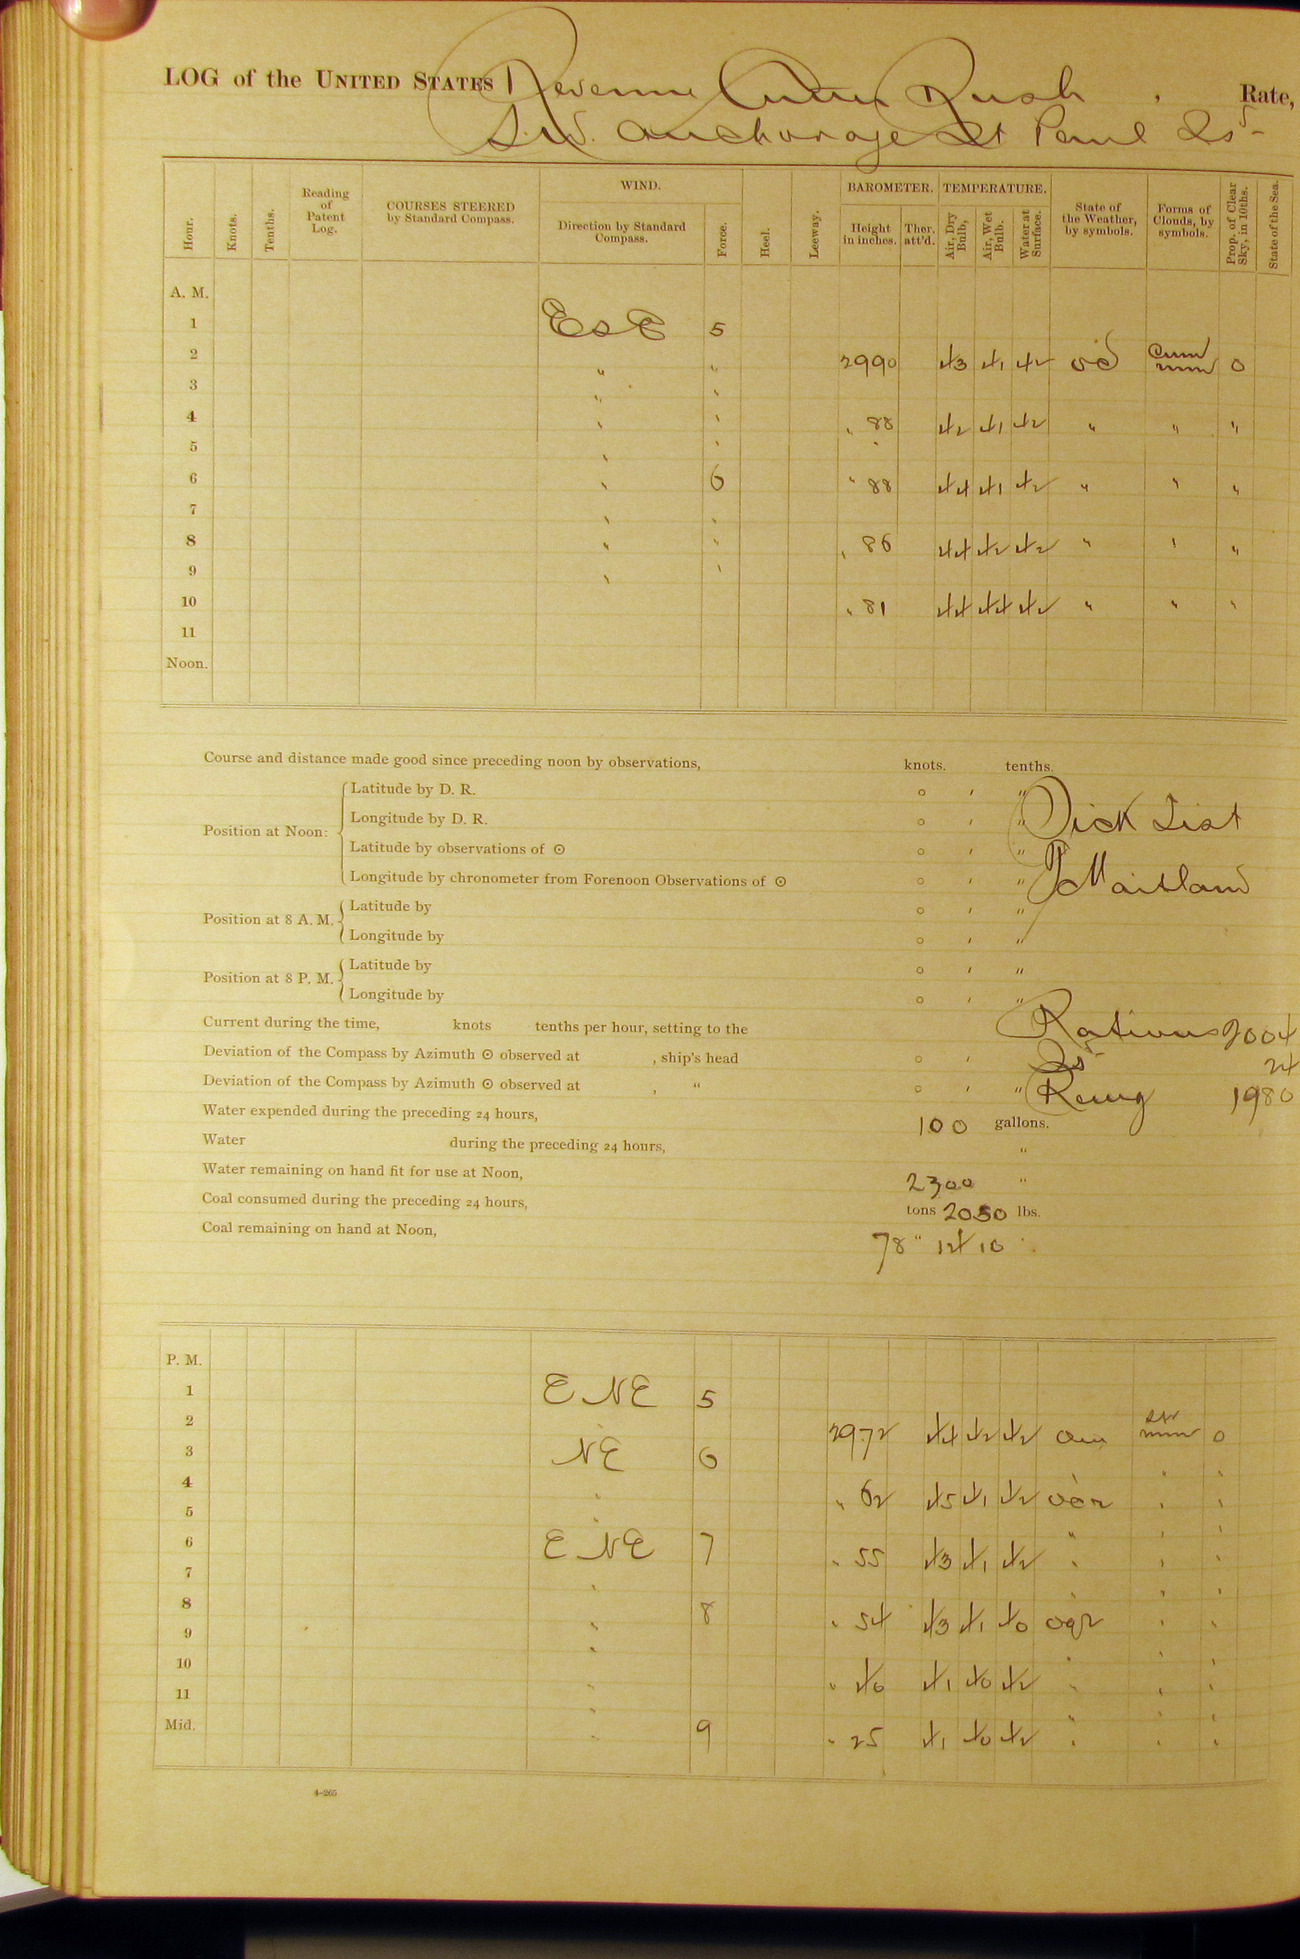 LOG of the UNITED STATES Revenue Cutter Rush , Rate,
S.W. Anchorage St Paul Is
Hour. Knots. Tenths. Reading of Patent Log. COURSES STEERED by Standard Compass. WIND. Direction by Standard Compass. Force. Heel. Leeway. BAROMETER. Height in inches. Ther. att'd. TEMPERATURE. Air, Dry Bulb, Air, Wet Bulb. Water at Surface. State of the Weather, by symbols. Forms of Clouds, by symbols. Prop. of Clear Sky, in 10ths. State of the Sea.
A. M.
1 EsE 5
2 " " 2990 43 41 42 od Cum nim 0
3 " "
4 " " " 88 42 41 42 " " "
5 " "
6 " 6 " 88 44 41 42 " " "
7 " "
8 " " " 86 44 42 42 " " "
9 " "
10 " 81 44 44 42 " " "
11
Noon.
Course and distance made good since preceding noon by observations, knots. tenths.
Position at Noon:
Latitude by D. R. ° ′ ″
Longitude by D. R. ° ′ ″ Sick List
Latitude by observations of ⊙ ° ′ ″
Longitude by chronometer from Forenoon Observations of ⊙ ° ′ ″ Maitland
Position at 8 A. M.
Latitude by ° ′ ″
Longitude by ° ′ ″
Position at 8 P. M.
Latitude by ° ′ ″
Longitude by ° ′ ″
Current during the time, knots tenths per hour, setting to the Rations 2004
Deviation of the Compass by Azimuth ⊙ observed at , ship's head ° ′ Is 24
Deviation of the Compass by Azimuth ⊙ observed at , " ° ′ ″ Remg 1980
Water expended during the preceding 24 hours, 100 gallons.
Water during the preceding 24 hours, "
Water remaining on hand fit for use at Noon, 2300 "
Coal consumed during the preceding 24 hours, tons 2050 lbs.
Coal remaining on hand at Noon, 78 " 1410 "
P. M.
1 ENE 5
2 " 2972 44 42 42 om str nim 0
3 NE 6 " "
4 " " 62 45 41 42 " "
5 " " " "
6 ENE 7 " 55 43 41 42 " " "
7 " " " "
8 " 8 " 54 43 41 40 oqr " "
9 " " " "
10 " " 40 41 40 42 " " "
11 " " " "
Mid. " 9 " 25 41 40 42 " " "
4-265